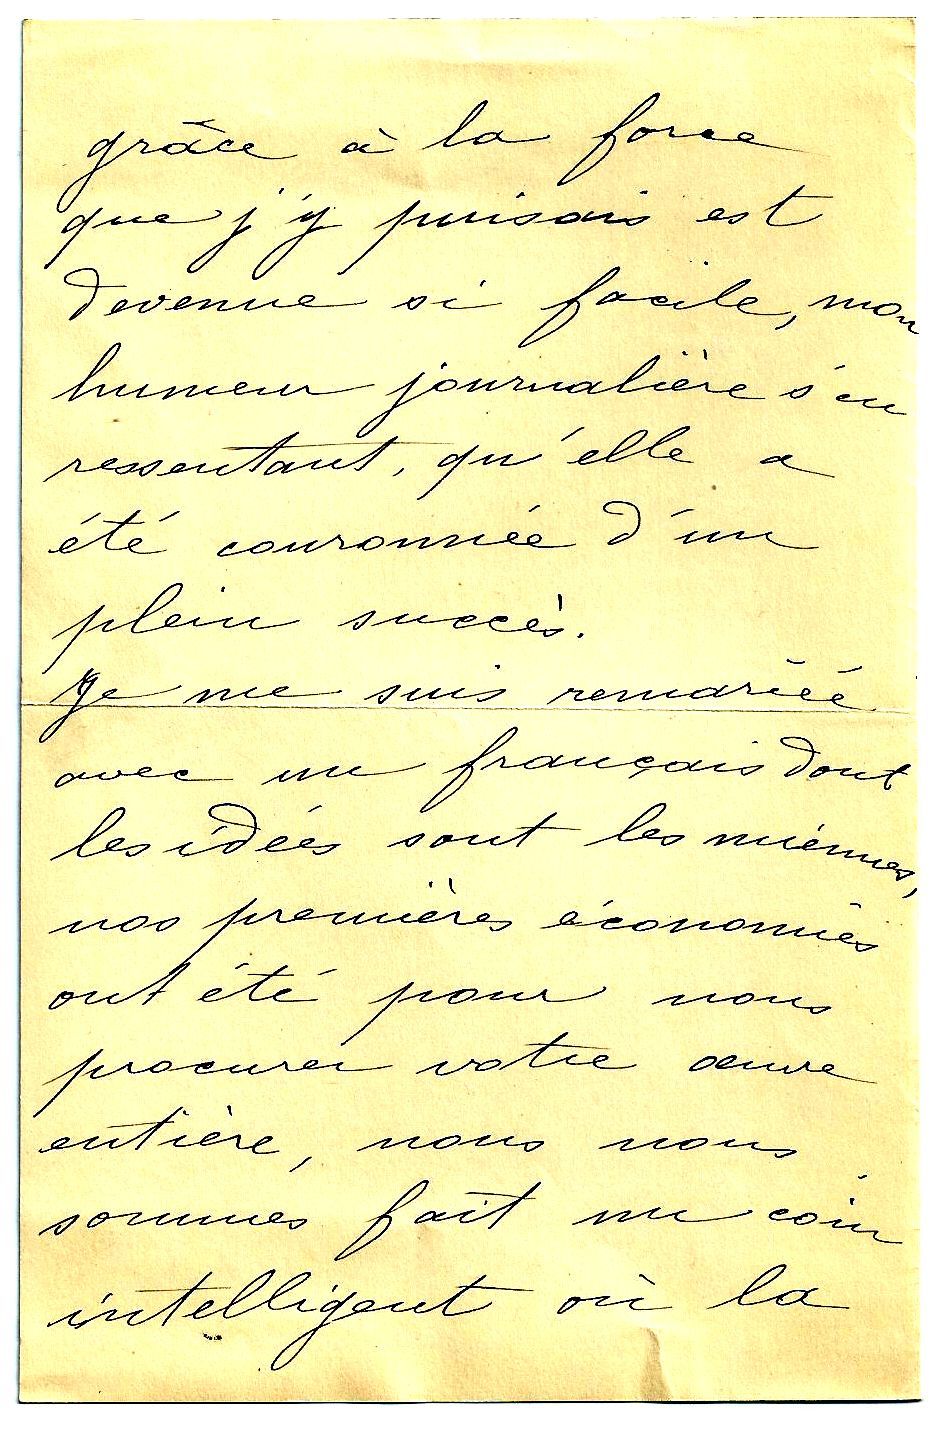 grâce à la force
que j'y puisais est
devenue si facile, mon
humeur journalière s'en
ressentant, qu'elle a
été couronnée d'un
plein succès.
Je me suis remariée
avec un français dont
les idées sont les miennes,
nos premières économies
ont été pour nous
procurer votre œuvre
entière, nous nous
sommes fait un coin
intelligent où la